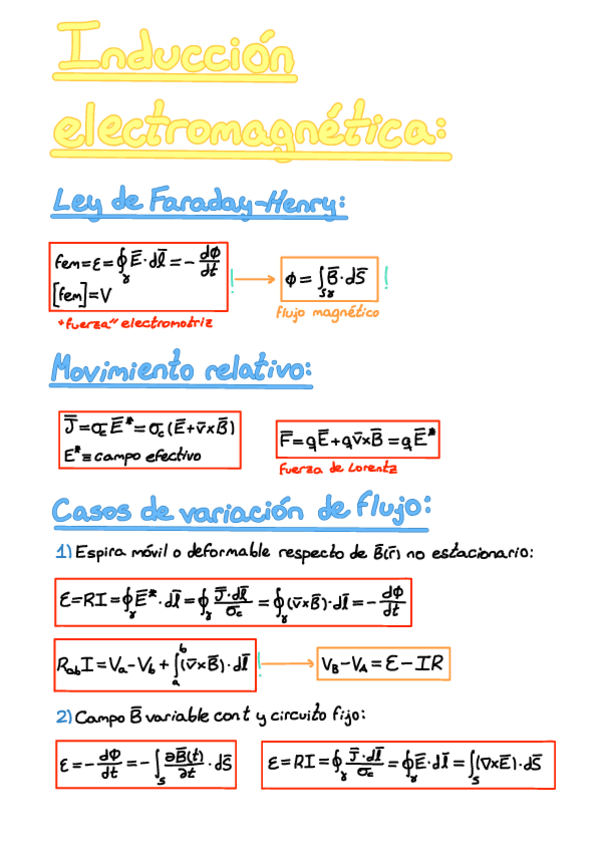 Inducción
electromagnética:
Ley de Faraday-Henry:
fem=ε=∮_γ E̅·dl̅=-dΦ/dt
[fem]=V
! → Φ=∫_Sγ B̅·dS̅ !
"fuerza" electromotriz
flujo magnético
Movimiento relativo:
J̅=σc E̅*=σc(E̅+v̅×B̅)
E̅*≡campo efectivo
F̅=qE̅+qv̅×B̅=qE̅*
Fuerza de Lorentz
Casos de variación de flujo:
1) Espira móvil o deformable respecto de B̅(r̅) no estacionario:
ε=RI=∮_γ E̅*·dl̅=∮_γ J̅·dl̅/σc=∮_γ(v̅×B̅)·dl̅=-dΦ/dt
R_ab I=Va-Vb+∫_a^b(v̅×B̅)·dl̅ ! → V_B-V_A=ε-IR
2) Campo B̅ variable con t y circuito fijo:
ε=-dΦ/dt=-∫_S ∂B̅(t)/∂t·dS̅
ε=RI=∮_γ J̅·dl̅/σc=∮_γ E̅·dl̅=∫_S(∇×E̅)·dS̅